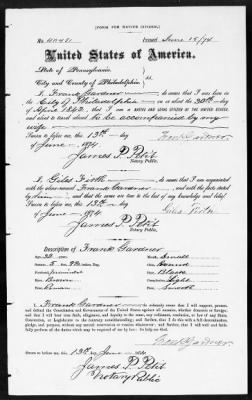 [FORM FOR NATIVE CITIZEN.]
No. Issued June 15/74
United States of America.
State of Pennsylvania
City and County of Philadelphia ss.
I, Frank Gardner do swear that I was born in the
City of Philadelphia on or about the 30th day
of
and intend to be accompanied by my
wife
Sworn to before me, this 13th day
of June 1874 Frank Gardner
James P. Petit
Notary Public.
I, Giles Firth do swear that I am acquainted
with the above-named Frank Gardner, and with the facts stated
by him, and that the same are true to the best of my knowledge and belief.
Sworn to before me, this 13th day
of June 1874 Giles Firth
James P. Petit
Notary Public.
Description of Frank Gardner
Age, Small
Round
Black
Brown Light
I, Frank Gardner do solemnly swear that I will support, protect,
and defend the Constitution and Government of the United States against all enemies, whether domestic or foreign;
and that I will bear true faith, allegiance, and loyalty to the same, any ordinance, resolution, or law of any State,
Convention, or Legislature to the contrary notwithstanding; and further, that I do this with a full determination,
pledge, and purpose, without any mental reservation or evasion whatsoever; and further, that I will well and faith-
fully perform all the duties which may be required of me by law: So help me God.
Frank Gardner
Sworn to before me, this 13th June 1874
James P. Petit
Notary Public